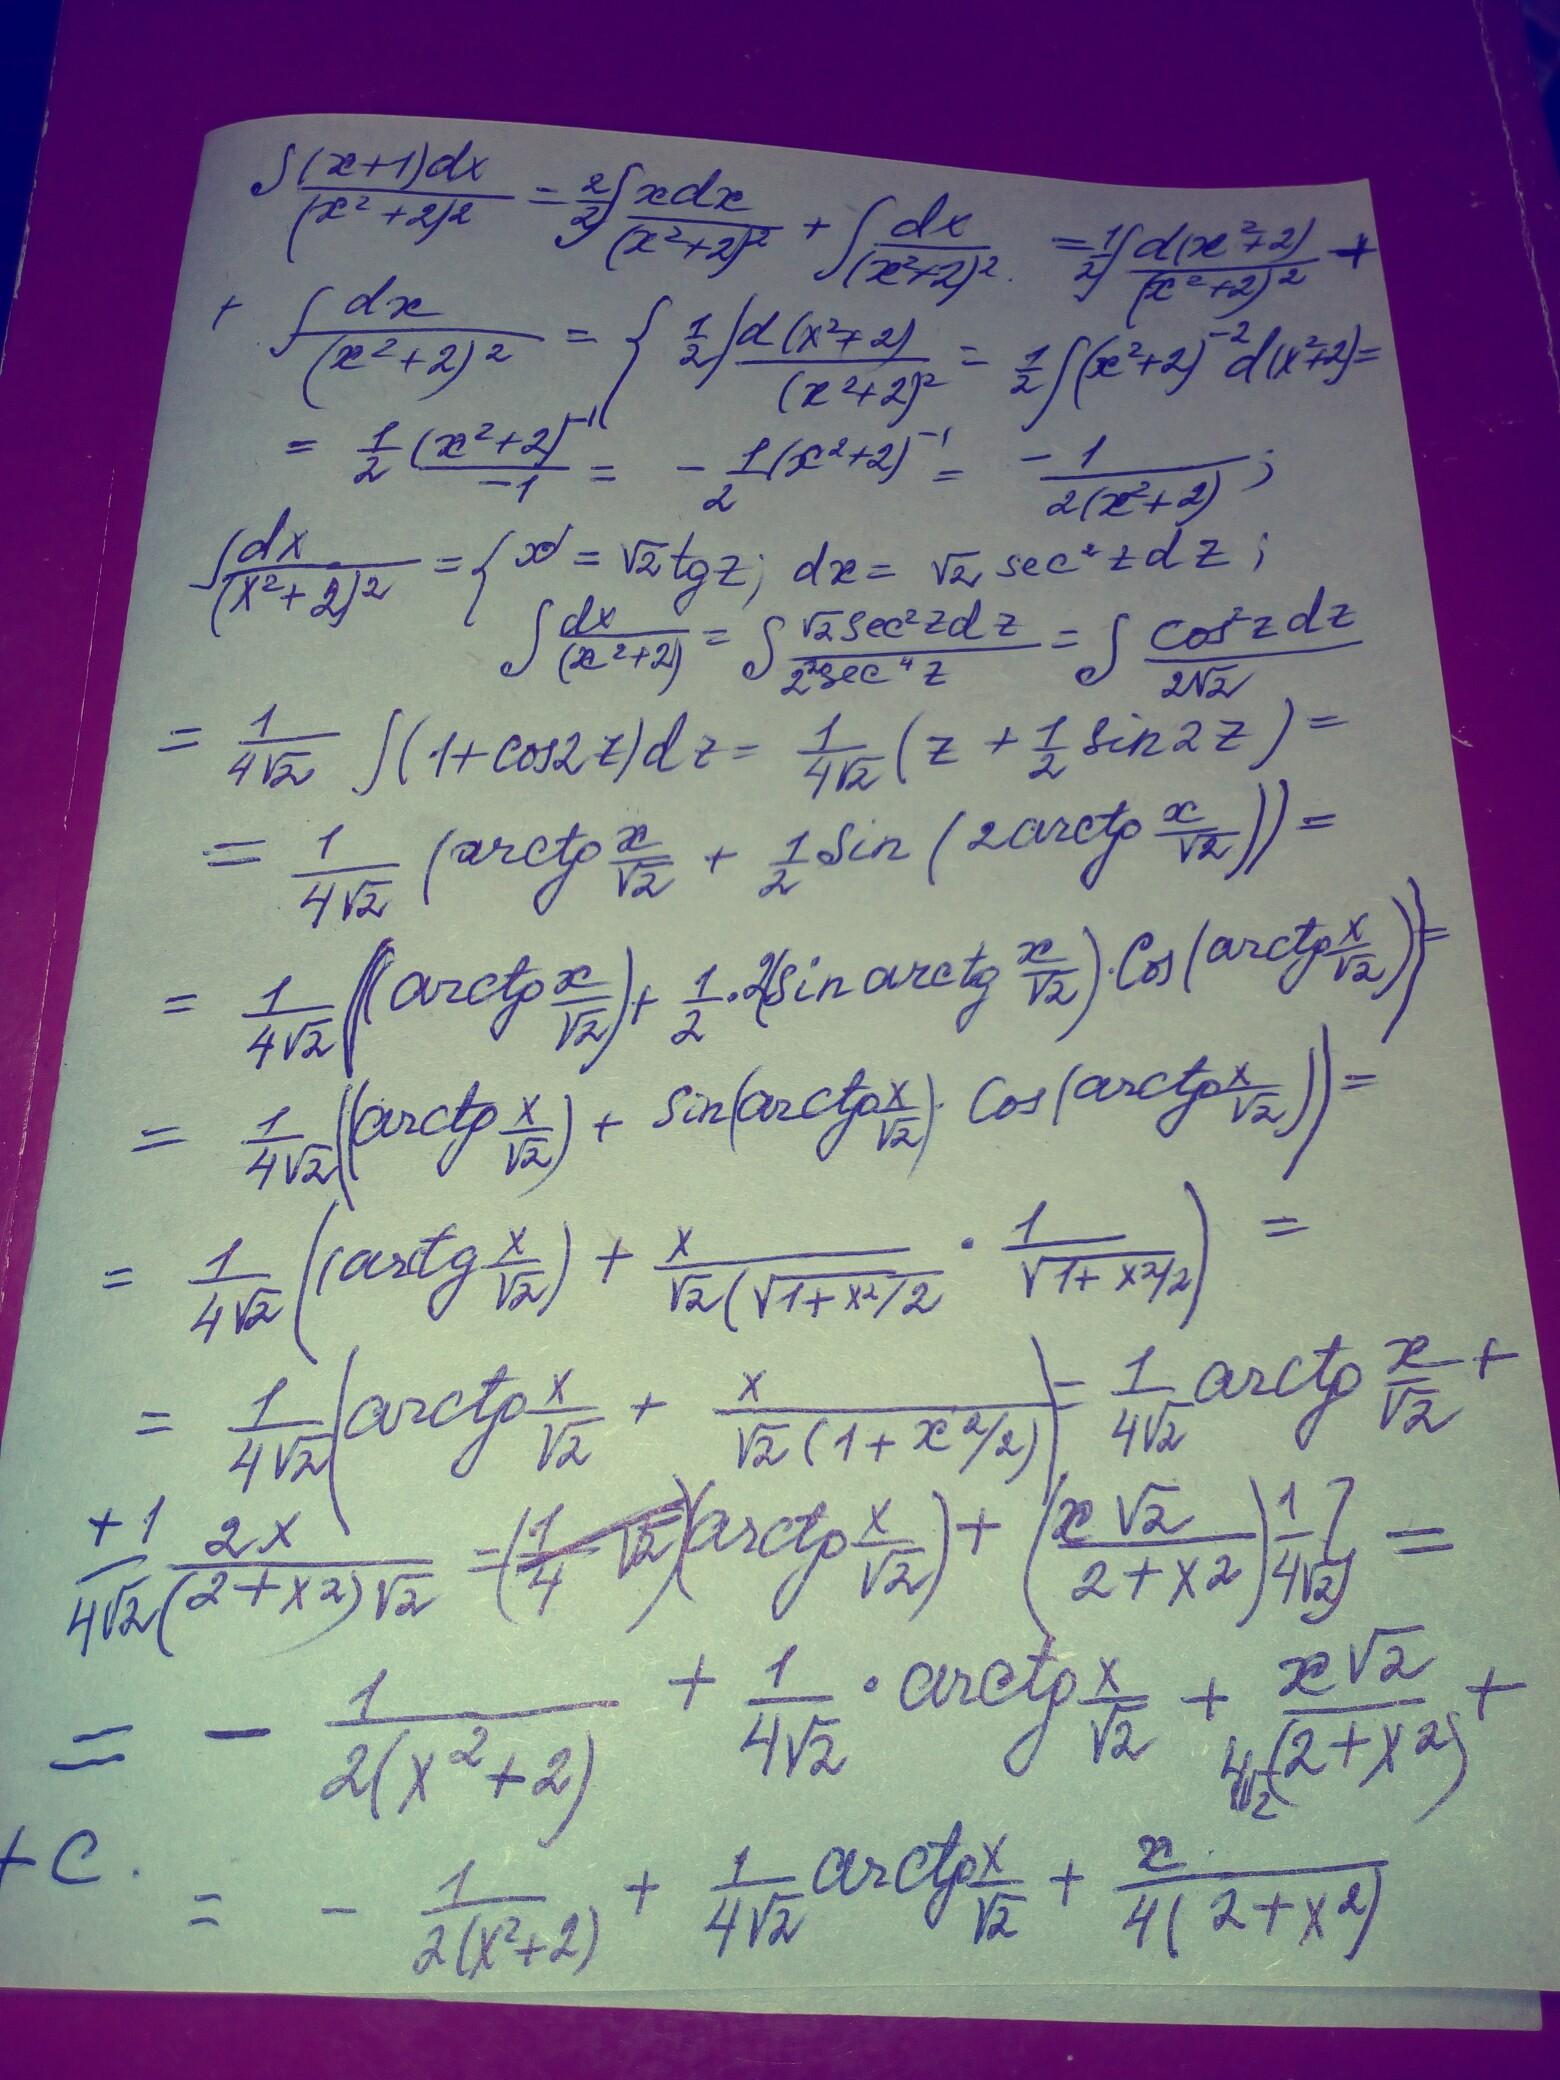 ∫(x+1)dx/(x²+2)² = 2/2∫xdx/(x²+2)² + ∫dx/(x²+2)². = 1/2∫d(x²+2)/(x²+2)² +
+ ∫dx/(x²+2)² = { 1/2∫d(x²+2)/(x²+2)² = 1/2∫(x²+2)⁻²d(x²+2) =
= 1/2 (x²+2)⁻¹/-1 = - 1/2(x²+2)⁻¹ = -1/2(x²+2) ;
∫dx/(x²+2)² = { x = √2tgz; dx = √2 sec²zdz ;
∫dx/(x²+2) = ∫√2sec²zdz/2²sec⁴z = ∫cos²zdz/2√2
= 1/4√2 ∫(1+cos2z)dz = 1/4√2 (z + 1/2 sin2z) =
= 1/4√2 (arctg x/√2 + 1/2 sin (2arctg x/√2)) =
= 1/4√2 ((arctg x/√2) + 1/2·2(sin arctg x/√2)·Cos(arctg x/√2)) =
= 1/4√2 ((arctg x/√2) + sin(arctg x/√2)· Cos(arctg x/√2)) =
= 1/4√2 ((arctg x/√2) + x/√2(√1+x²/2 · 1/√1+x²/2) =
= 1/4√2 (arctg x/√2 + x/√2(1+x²/2)) = 1/4√2 arctg x/√2 +
+1/4√2 2x/(2+x²)√2 = (1/4 √2)(arctg x/√2) + (x√2/2+x²)1/4√2 =
= - 1/2(x²+2) + 1/4√2 · arctg x/√2 + x√2/4√2(2+x²) +
+ C.
= - 1/2(x²+2) + 1/4√2 arctg x/√2 + x/4(2+x²)